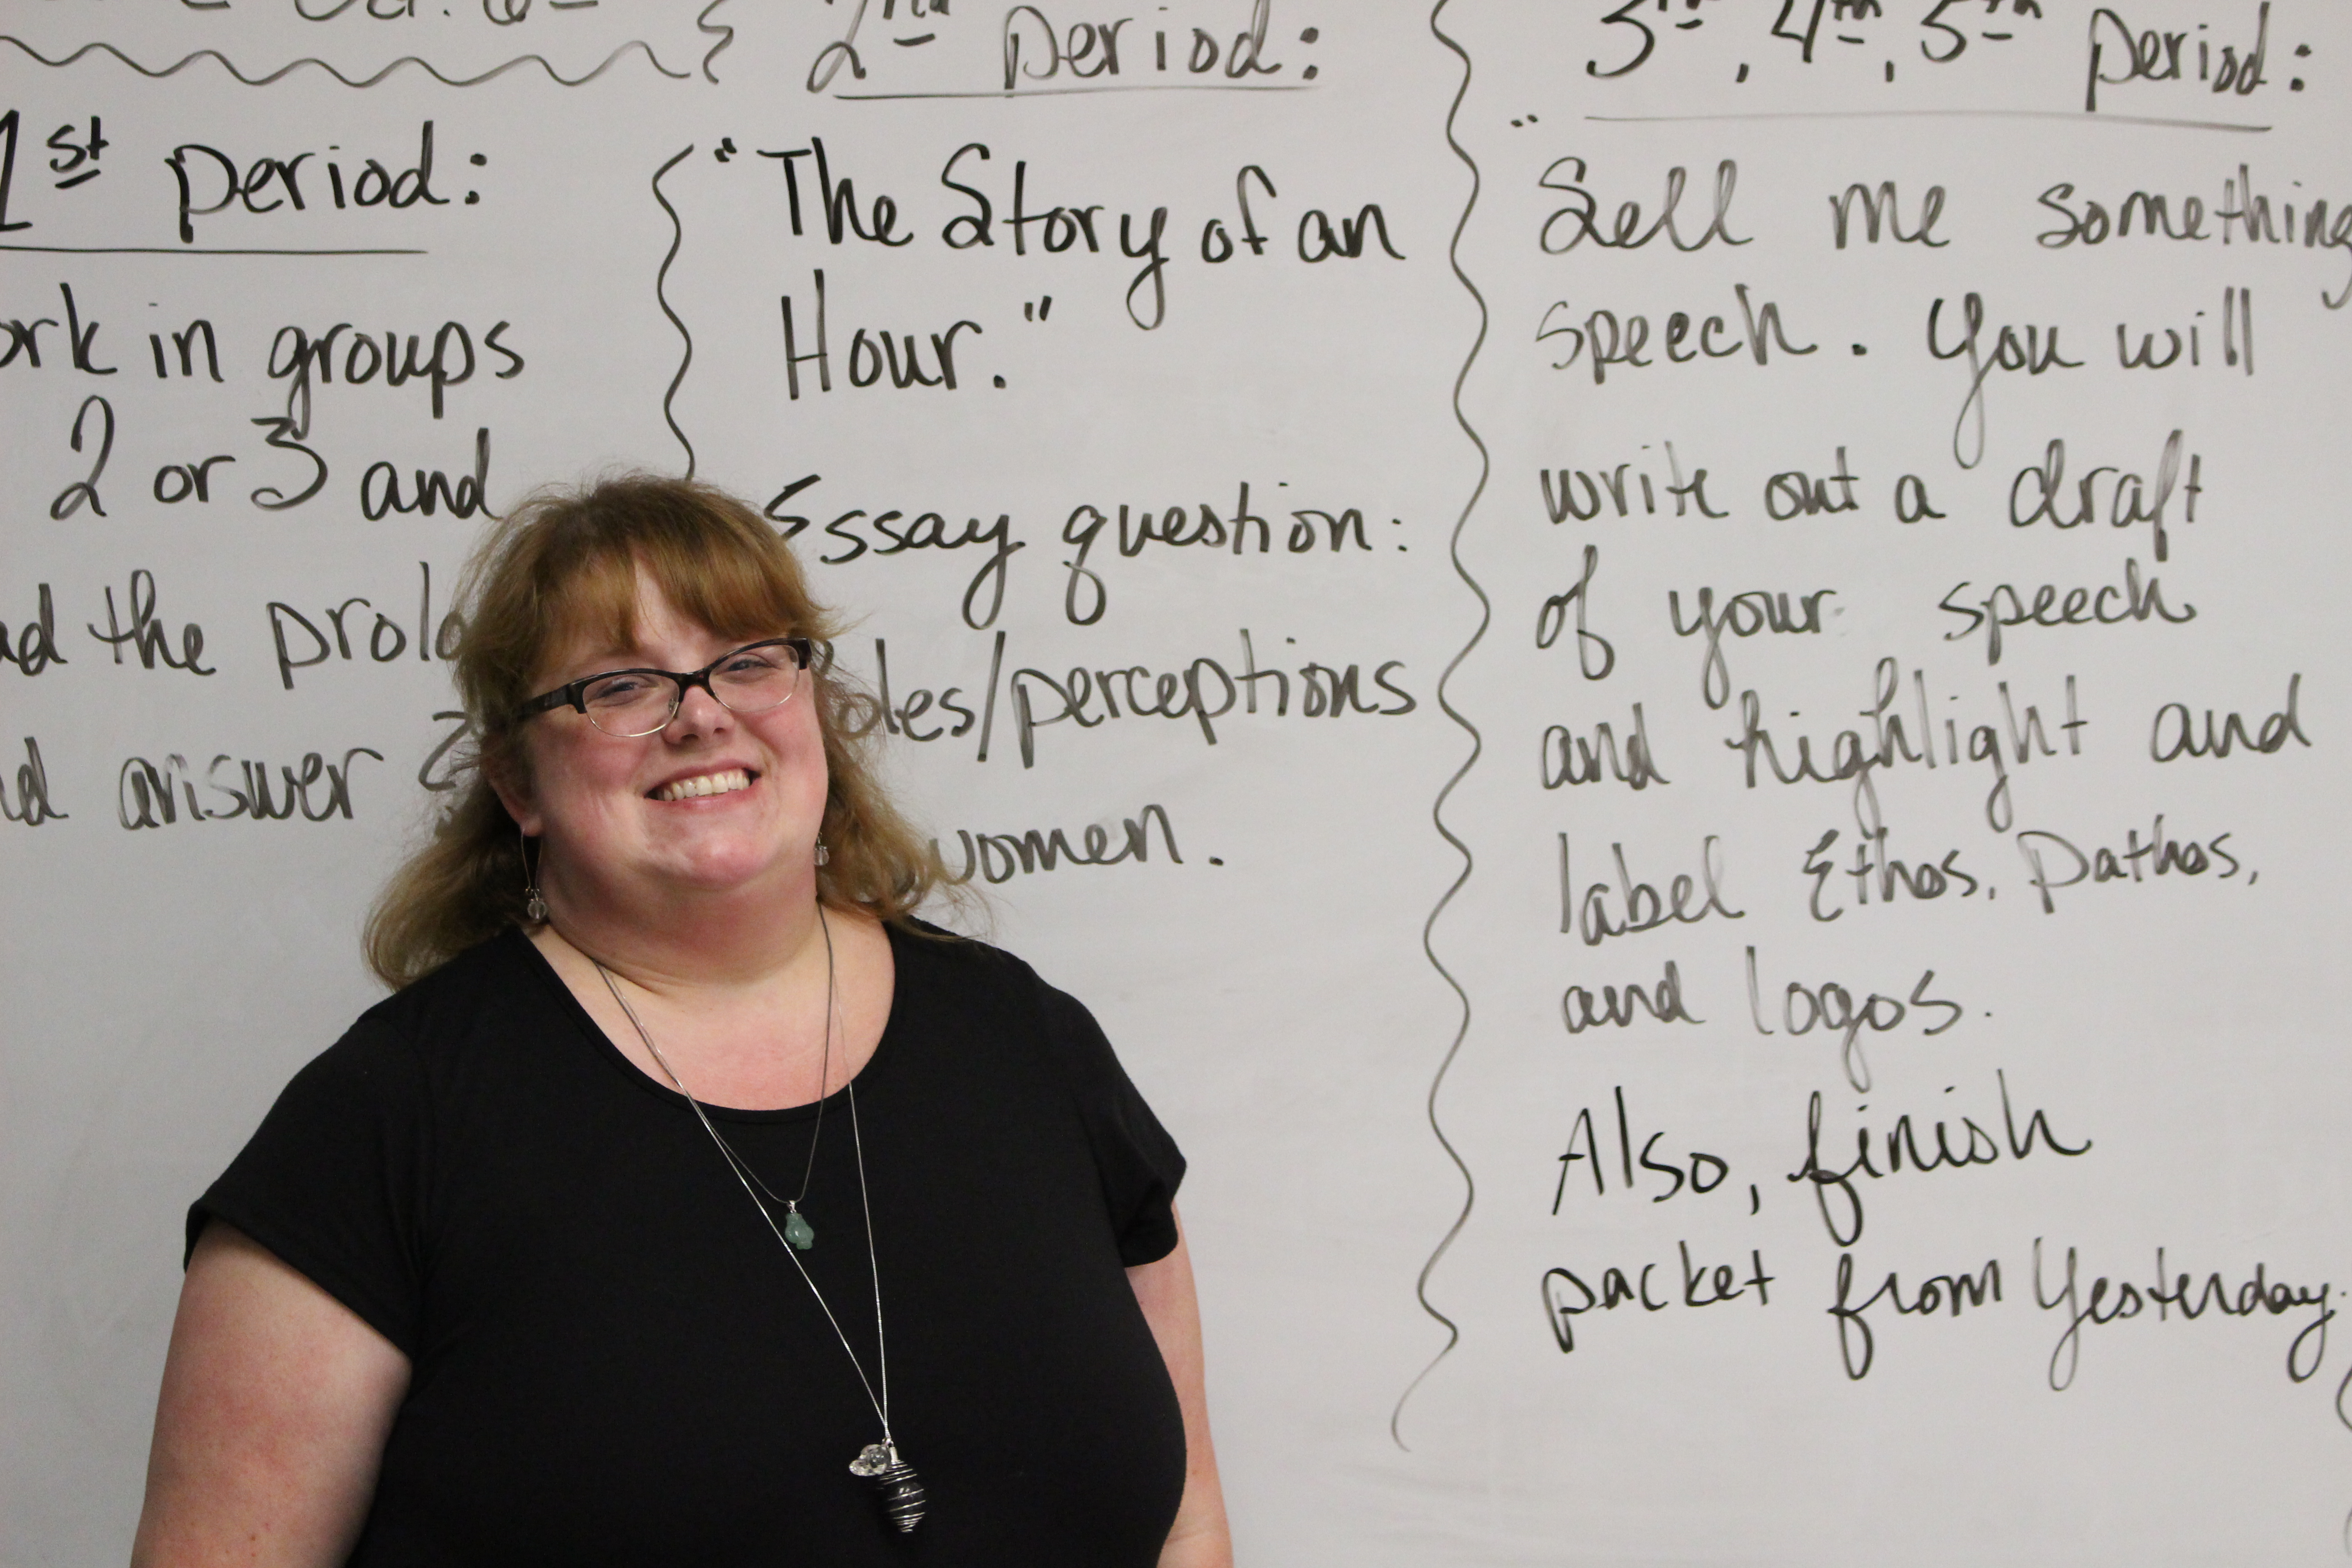 1st period:
in groups
2 or 3 and
the
answer
2nd period:
"The Story of an
Hour."
Essay question:
/perceptions
women.
3rd, 4th, 5th period:
Sell me something
speech. You will
write out a draft
of your speech
and highlight and
label Ethos, Pathos,
and logos.
Also, finish
packet from Yesterday.